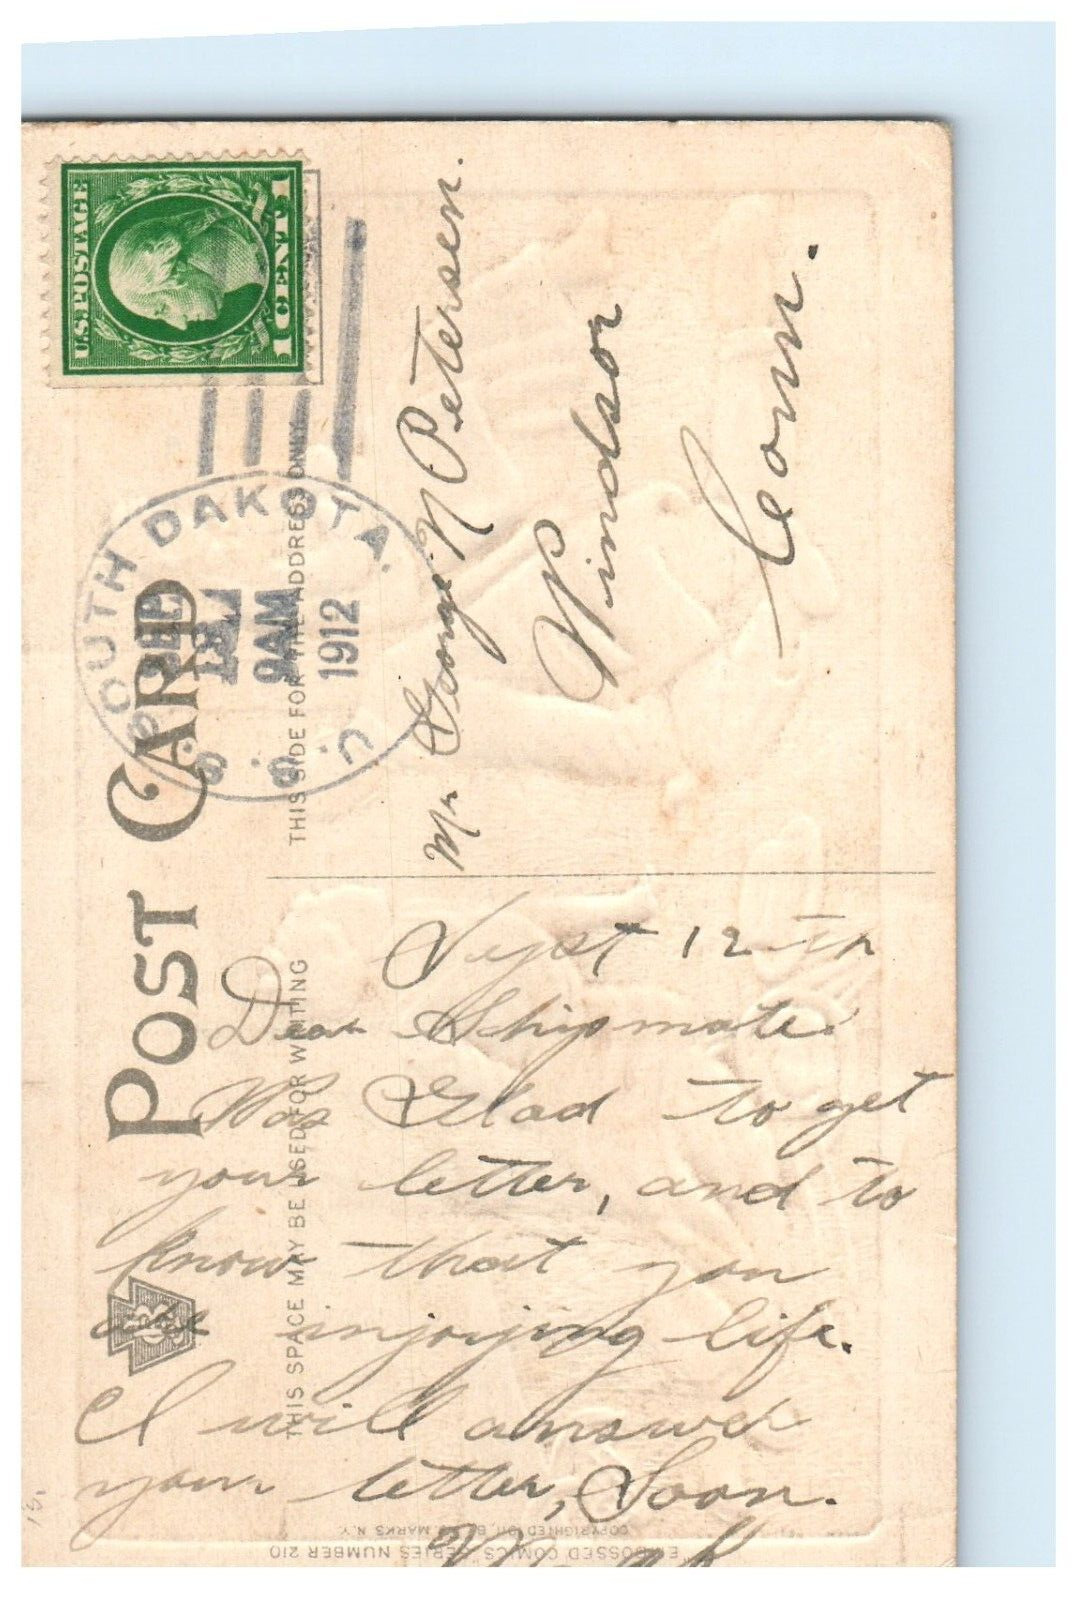 U.S. POSTAGE
1 CENT 1
SOUTH DAKOTA.
SEP
9 AM
1912
U. S. S.
POST CARD
THIS SIDE FOR THE ADDRESS ONLY
THIS SPACE MAY BE USED FOR WRITING
Mr George N Petersen.
Windsor
Conn.
Sept 12 th
Dear Shipmate.
Was Glad to get
your letter, and to
know that you
are injoying life.
I will answer
your letter, Soon.
EMBOSSED COMICS, SERIES NUMBER 210
COPYRIGHTED 1911, B. MARKS N.Y.